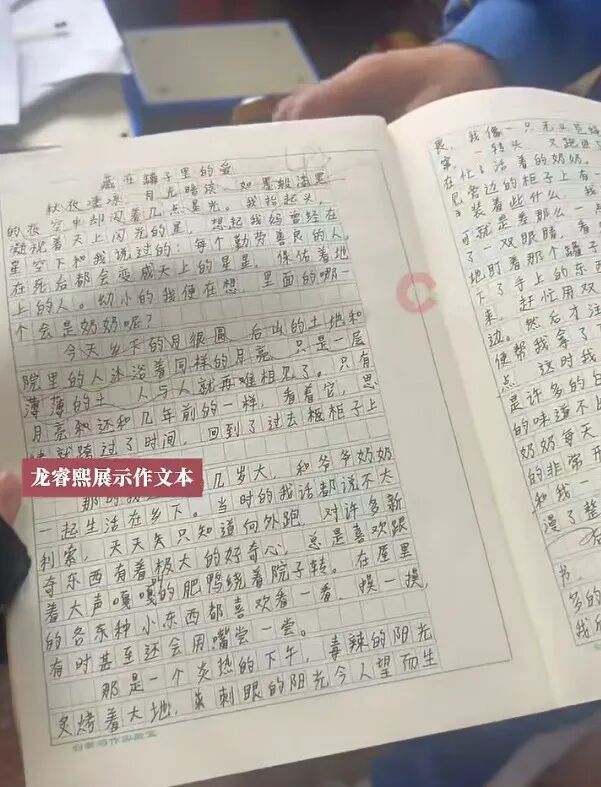 藏在罐子里的爱
秋夜凄凉，月光暗淡，如墨般漆黑
的夜空中却闪着几点星光。我抬起头，
凝视着天上闪光的星，想起我妈曾经在
星空下和我说过的：每个勤劳善良的人，
在死后都会变成天上的星星，保佑着地
上的人。幼小的我便在想，里面的哪一
个会是奶奶呢？
今天乡下的月很圆，后山的土地和
院里的人沐浴着同样的月亮，只是一层
薄薄的土，人与人就再难相见了。只有
月亮和还和几年前的一样，看着它，思
绪就跨过了时间，回到了过去柜子上
龙睿熙展示作文本
几岁大，和爷爷奶奶
一起生活在乡下。当时的我话都说不大
利索，天天只知道向外跑，对许多新
奇东西有着极大的好奇心，总是喜欢跟
着大声嘎嘎的肥鸭绕着院子转。在屋里
的各种小东西都喜欢看一看，摸一摸，
有时甚至还会用嘴尝一尝。
那是一个炎热的下午，毒辣的阳光
炙烤着大地，刺眼的阳光令人望而生
畏，我像一只无头苍蝇
一转头，又跑进
在忙活着的奶奶。
旁边的柜子上有一
装着些什么，我
可就是差那么一点
了一双眼睛，看
地盯着那个罐子
下了手上的东西
来，赶忙用双
边。然后才注
便帮我拿了下
点，这时我
是许多的白
的味道不比
奶奶每天
的非常开
和我一
漫了整
书
多的
我后